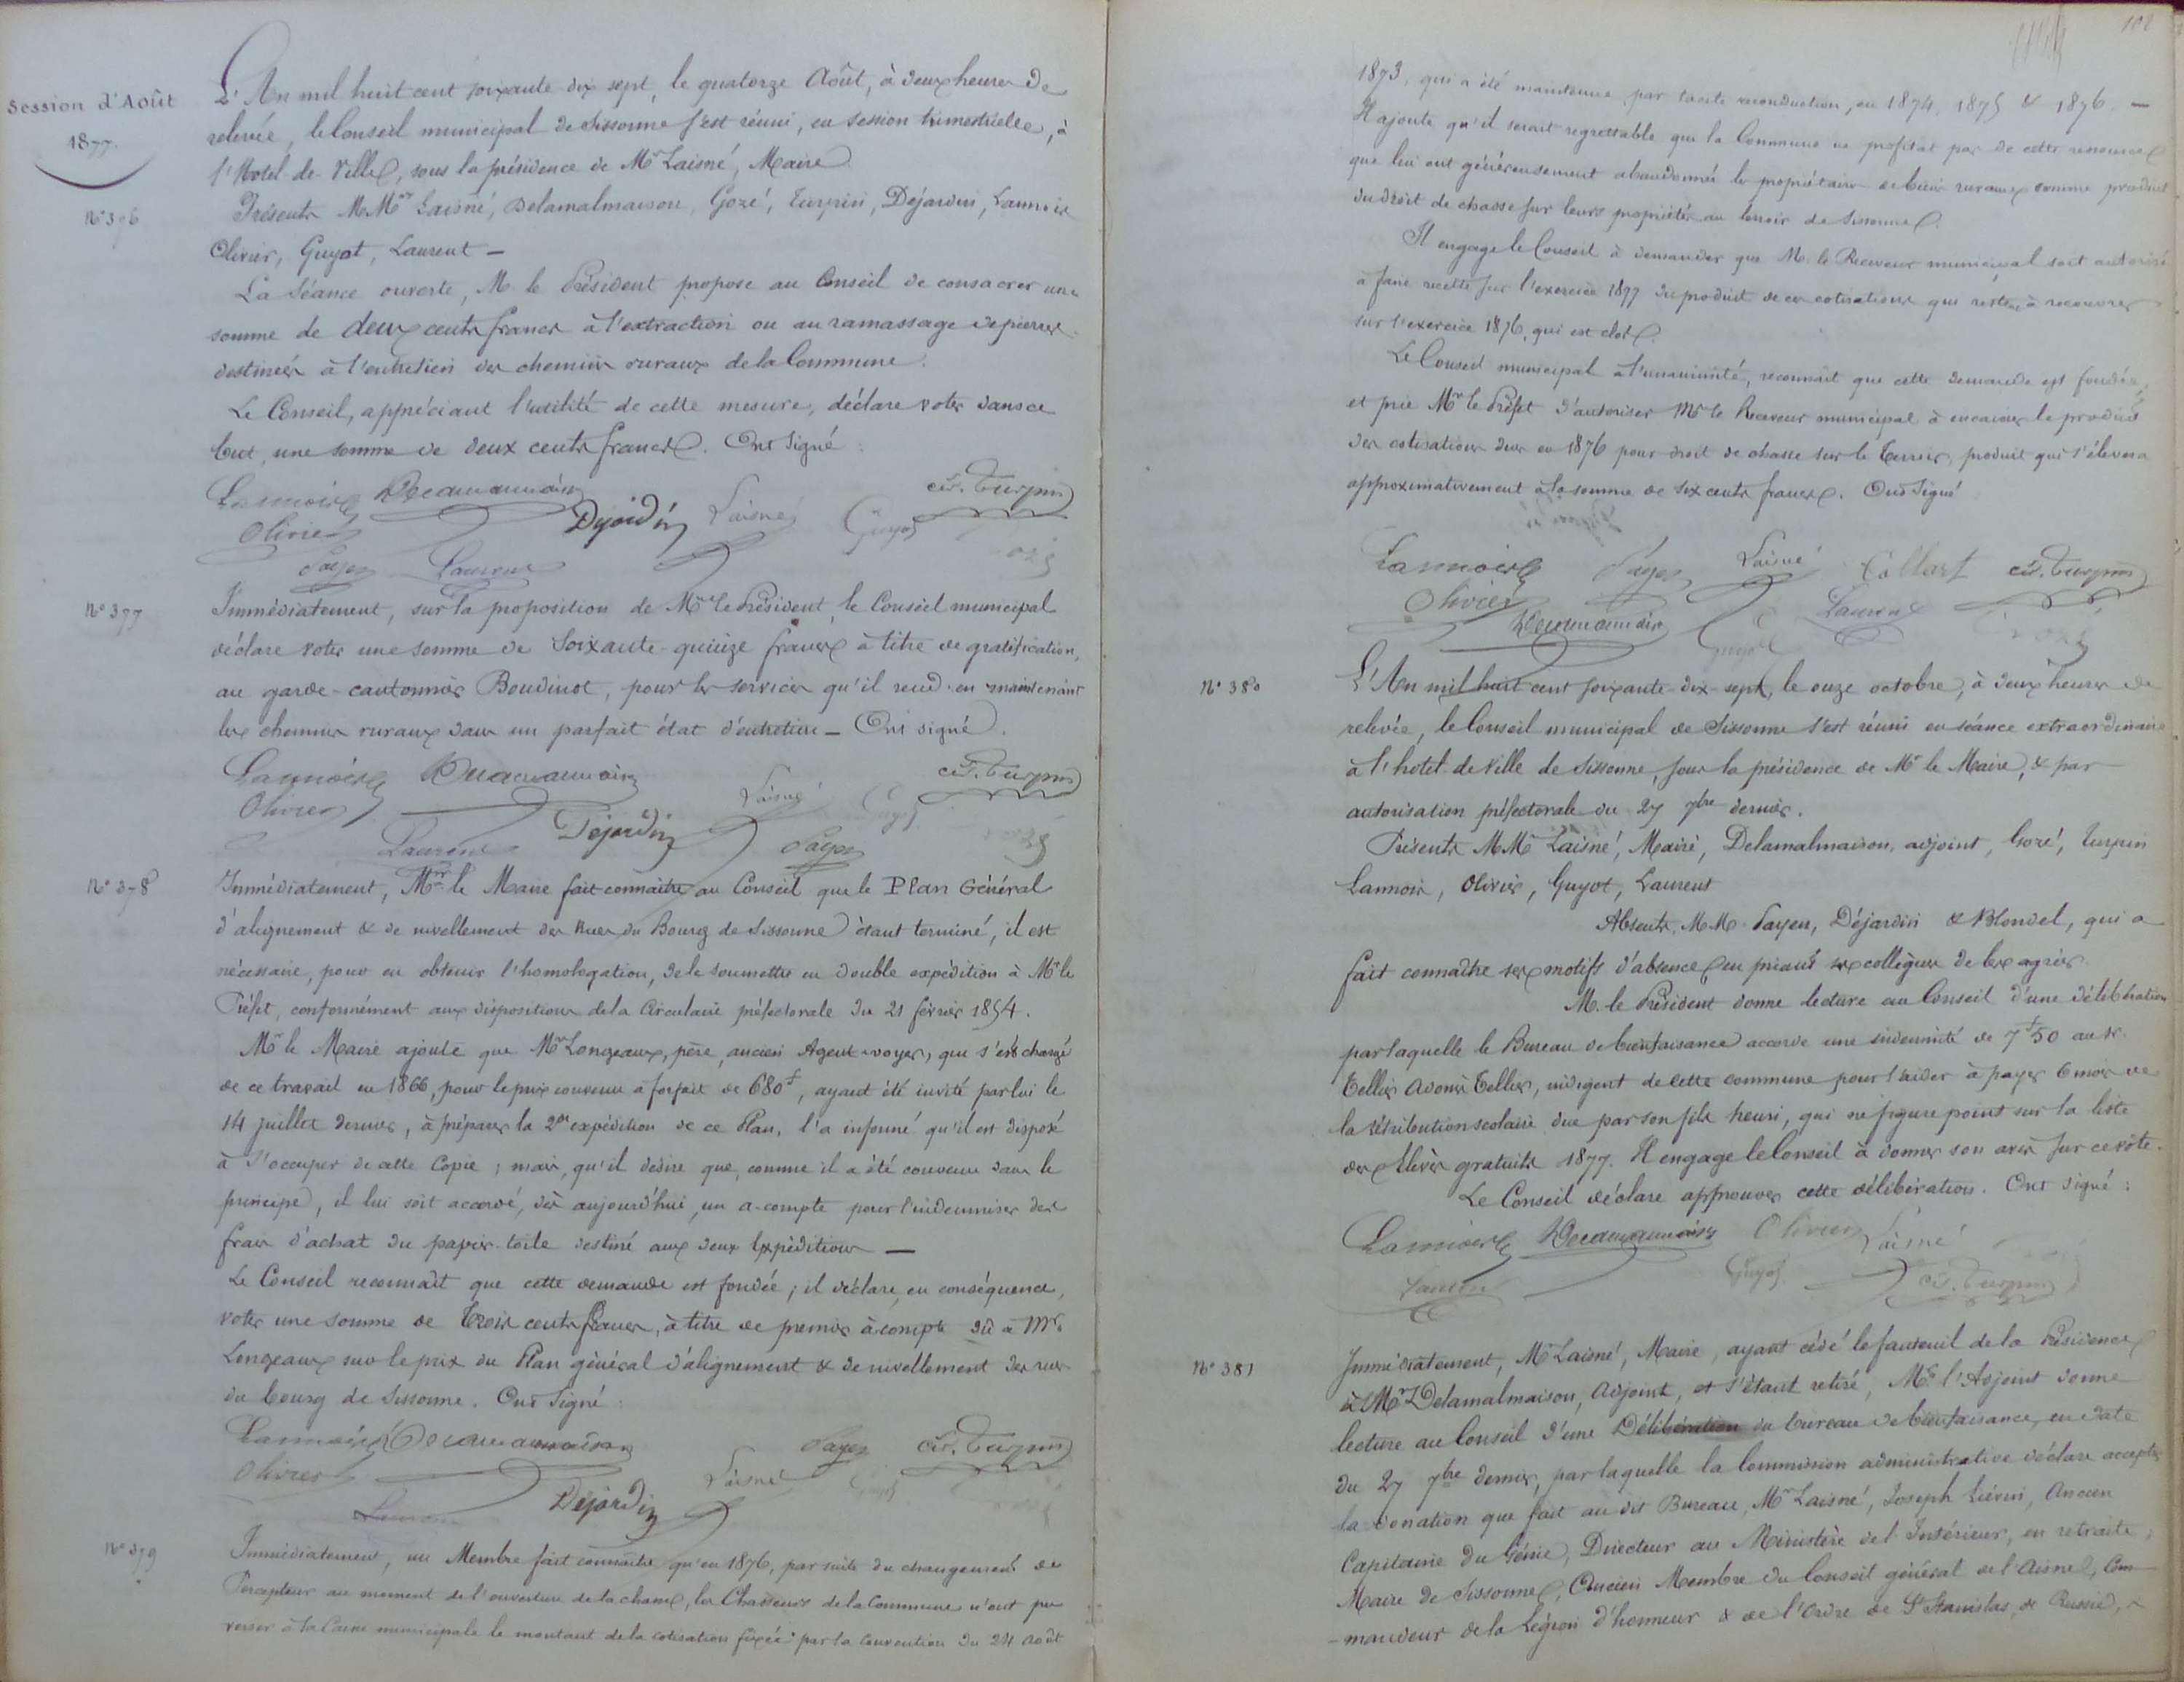 Session d'Août
1877.
L'An mil huit cent soixante-dix sept, le quatorze Août, à deux heures de
relevée, le Conseil municipal de Sissonne s'est réuni, en session trimestrielle, à
l'Hotel-de-Ville, sous la présidence de Mr Laisné, Maire
N° 376
Présents MMrs Laisné, Delamalmaison, Gozé, Turpin, Déjardin, Lannois
Olivier, Guyot, Laurent —
La Séance ouverte, M. le Président propose au Conseil de consacrer une
somme de deux cents francs à l'extraction ou au ramassage de pierres
destinées à l'entretien des chemins ruraux de la Commune.
Le Conseil, appréciant l'utilité de cette mesure, déclare voter dans ce
but, une somme de deux cents francs. Ont Signé :
Lannois Delamalmaison ct. Turpin
Olivier Dejardin Laisné Guyot Gozé
Payen Laurent
N° 377
Immédiatement, sur la proposition de Mr le Président, le Conseil municipal
déclare voter une somme de Soixante-quinze francs à titre de gratification,
au garde-cantonnier Boudinot, pour les services qu'il rend en maintenant
les chemins ruraux dans un parfait état d'entretien — Ont signé.
Lannois Delamalmaison Laisné ct. Turpin
Olivier Dejardin Guyot Gozé
Laurent Payen
N° 378
Immédiatement, Mr le Maire fait connaître au Conseil que le Plan Général
d'alignement & de nivellement des Rues du Bourg de Sissonne étant terminé, il est
nécessaire, pour en obtenir l'homologation, de le soumettre en double expédition à Mr le
Préfet, conformément aux dispositions de la Circulaire préfectorale du 21 février 1854.
Mr le Maire ajoute que Mr Longeaux, père, ancien Agent-voyer, qui s'est chargé
de ce travail en 1866, pour le prix convenu à forfait de 680f, ayant été invité par lui le
14 juillet dernier, à préparer la 2me expédition de ce Plan, l'a informé qu'il est disposé
à s'occuper de cette Copie ; mais, qu'il désire que, comme il a été convenu dans le
principe, il lui soit accordé, dès aujourd'hui, un a-compte pour l'indemniser des
frais d'achat du papier-toile destiné aux deux Expéditions —
Le Conseil reconnaît que cette demande est fondée ; il déclare, en conséquence,
voter une somme de Trois cents francs, à titre de premier à compte dû à Mr
Longeaux sur le prix du Plan général d'alignement & de nivellement des rues
du bourg de Sissonne. Ont Signé :
Lannois Delamalmaison Payen ct. Turpin
Olivier Dejardin Laisné Guyot Gozé
Laurent
N° 379
Immédiatement, un Membre fait connaître qu'en 1876, par suite du changement de
Percepteur au moment de l'ouverture de la chasse, les Chasseurs de la Commune n'ont pu
verser à la Caisse municipale le montant de la cotisation fixée par la Convention du 24 août
102
1873, qui a été maintenue, par tacite reconduction, en 1874, 1875 & 1876 —
Il ajoute qu'il serait regrettable que la Commune ne profitât pas de cette ressource
que lui ont généreusement abandonnée les propriétaires de biens ruraux comme produit
du droit de chasse sur leurs propriétés au terroir de Sissonne.
Il engage le Conseil à demander que M. le Receveur municipal soit autorisé
à faire recette sur l'exercice 1877 du produit de ces cotisations qui restent à recouvrer
sur l'exercice 1876, qui est clos.
Le Conseil municipal à l'unanimité, reconnaît que cette demande est fondée,
et prie Mr le Préfet d'autoriser Mr le Receveur municipal à encaisser le produit
des cotisations dues en 1876 pour droit de chasse sur le Terroir, produit qui s'élevera
approximativement à la somme de six cents francs. Ont Signé
Lannois Payen Laisné Collart ct. Turpin
Olivier Delamalmaison Guyot Laurent Gozé
N° 380
L'An mil huit cent soixante-dix-sept, le onze octobre, à deux heures de
relevée, le Conseil municipal de Sissonne s'est réuni en séance extraordinaire
à l'hotel de Ville de Sissonne, sous la présidence de Mr le Maire, & par
autorisation préfectorale du 27 7bre dernier.
Présents MMrs Laisné, Maire, Delamalmaison, adjoint, Gozé, Turpin
Lannois, Olivier, Guyot, Laurent
Absents, M.M. Payen, Déjardin & Blondel, qui a
fait connaître ses motifs d'absence en priant ses collègues de les agréer.
M. le Président donne lecture au Conseil d'une délibération
par laquelle le Bureau de bienfaisance accorde une indemnité de 7f50 au Sr
Tellier Adonis Tellier, indigent de cette commune pour l'aider à payer 6 mois de
la rétribution scolaire due par son fils henri, qui ne figure point sur la liste
des Elèves gratuits 1877. Il engage le Conseil à donner son avis sur ce vote.
Le Conseil déclare approuver cette délibération. Ont Signé :
Lannois Delamalmaison Olivier Laisné
Laurent Guyot ct. Turpin
N° 381
Immédiatement, Mr Laisné, Maire, ayant cédé le fauteuil de la Présidence
à Mr Delamalmaison, Adjoint, et s'étant retiré, Mr l'Adjoint donne
lecture au Conseil d'une Délibération du bureau de bienfaisance, en date
du 27 7bre dernier, par laquelle la Commission administrative déclare accepter
la donation que fait au dit Bureau, Mr Laisné, Joseph Liévin, Ancien
Capitaine du Génie, Directeur au Ministère de l'Intérieur, en retraite,
Maire de Sissonne, Ancien Membre du Conseil général de l'Aisne, Com-
-mandeur de la Légion d'honneur & de l'Ordre de St Stanislas de Russie,